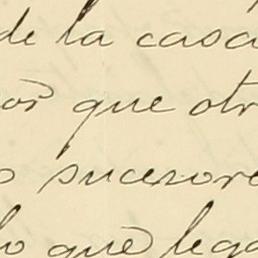 de la casa
que otr
sucesore
que lega